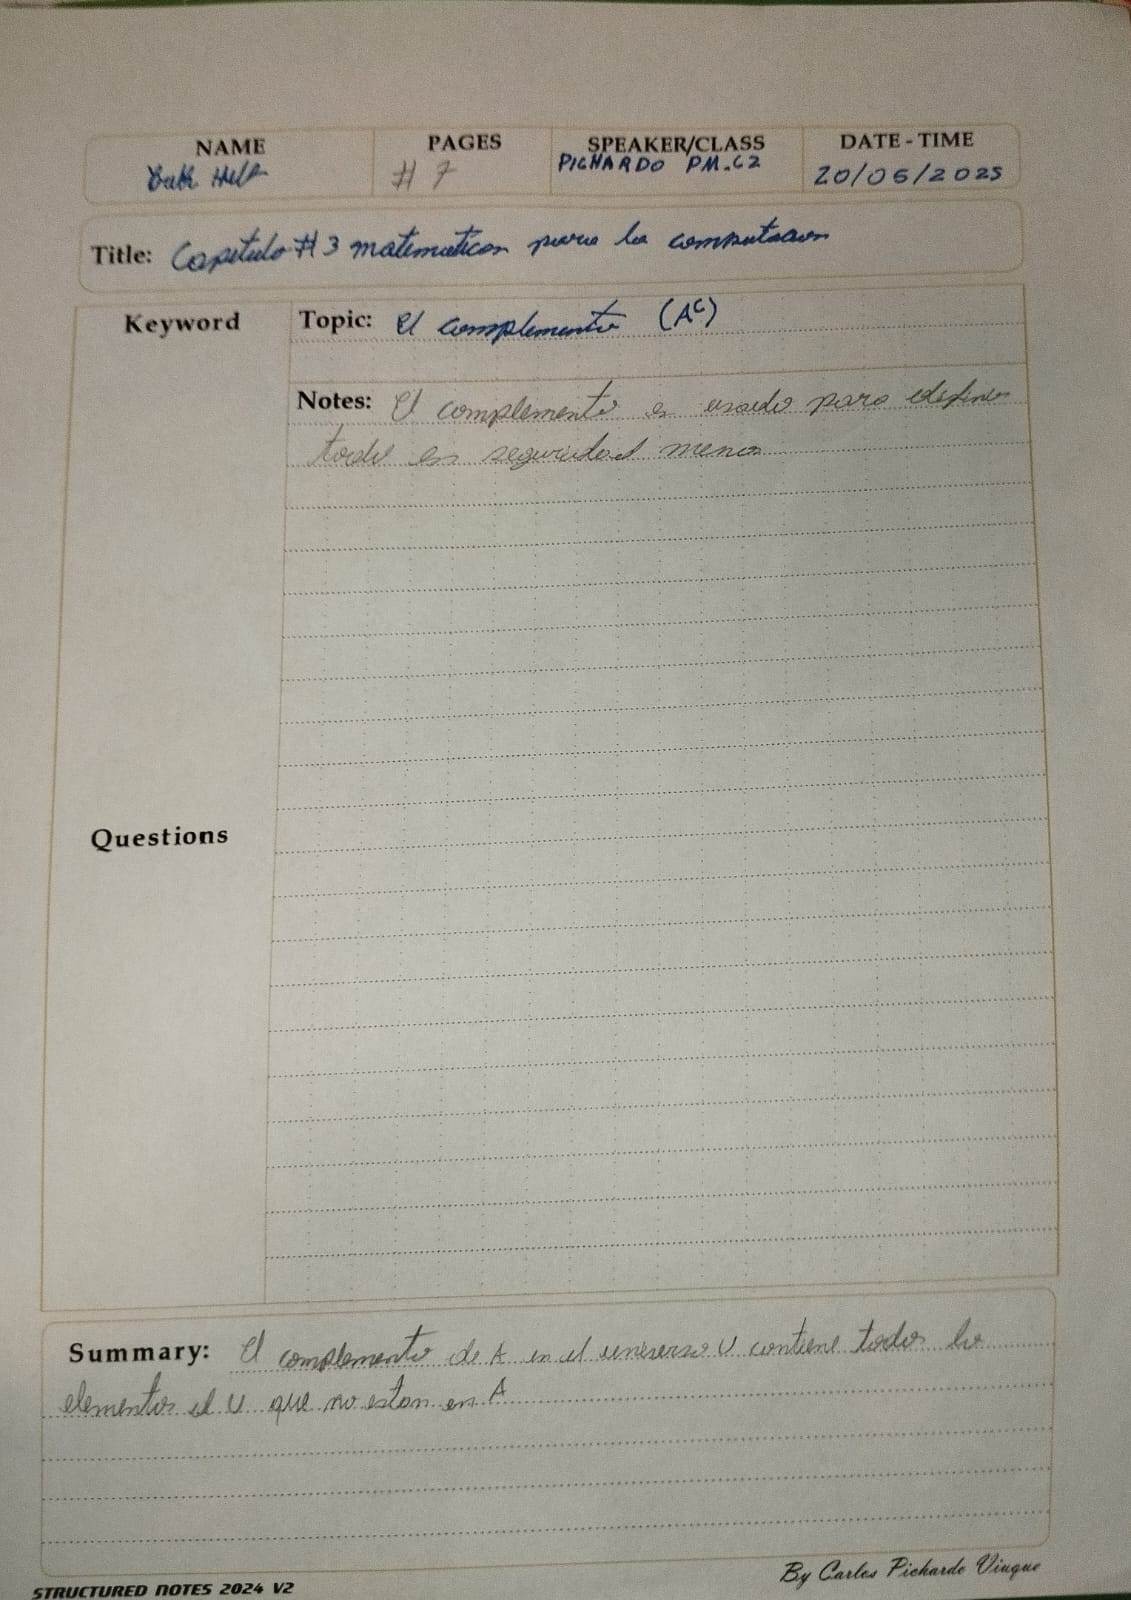 NAME PAGES SPEAKER/CLASS DATE-TIME
# 7 PICHARDO PM.C2 20/06/2025
Title: Capitulo #3 matematicas para la computacion
Keyword
Topic: El complemento (Aᶜ)
Notes: El complemento es usado para definir
todo en seguridad menos
Questions
Summary: El complemento de A en el universo U contiene todos los
elementos el U que no estan en A
STRUCTURED NOTES 2024 V2
By Carlos Pichardo Viuque